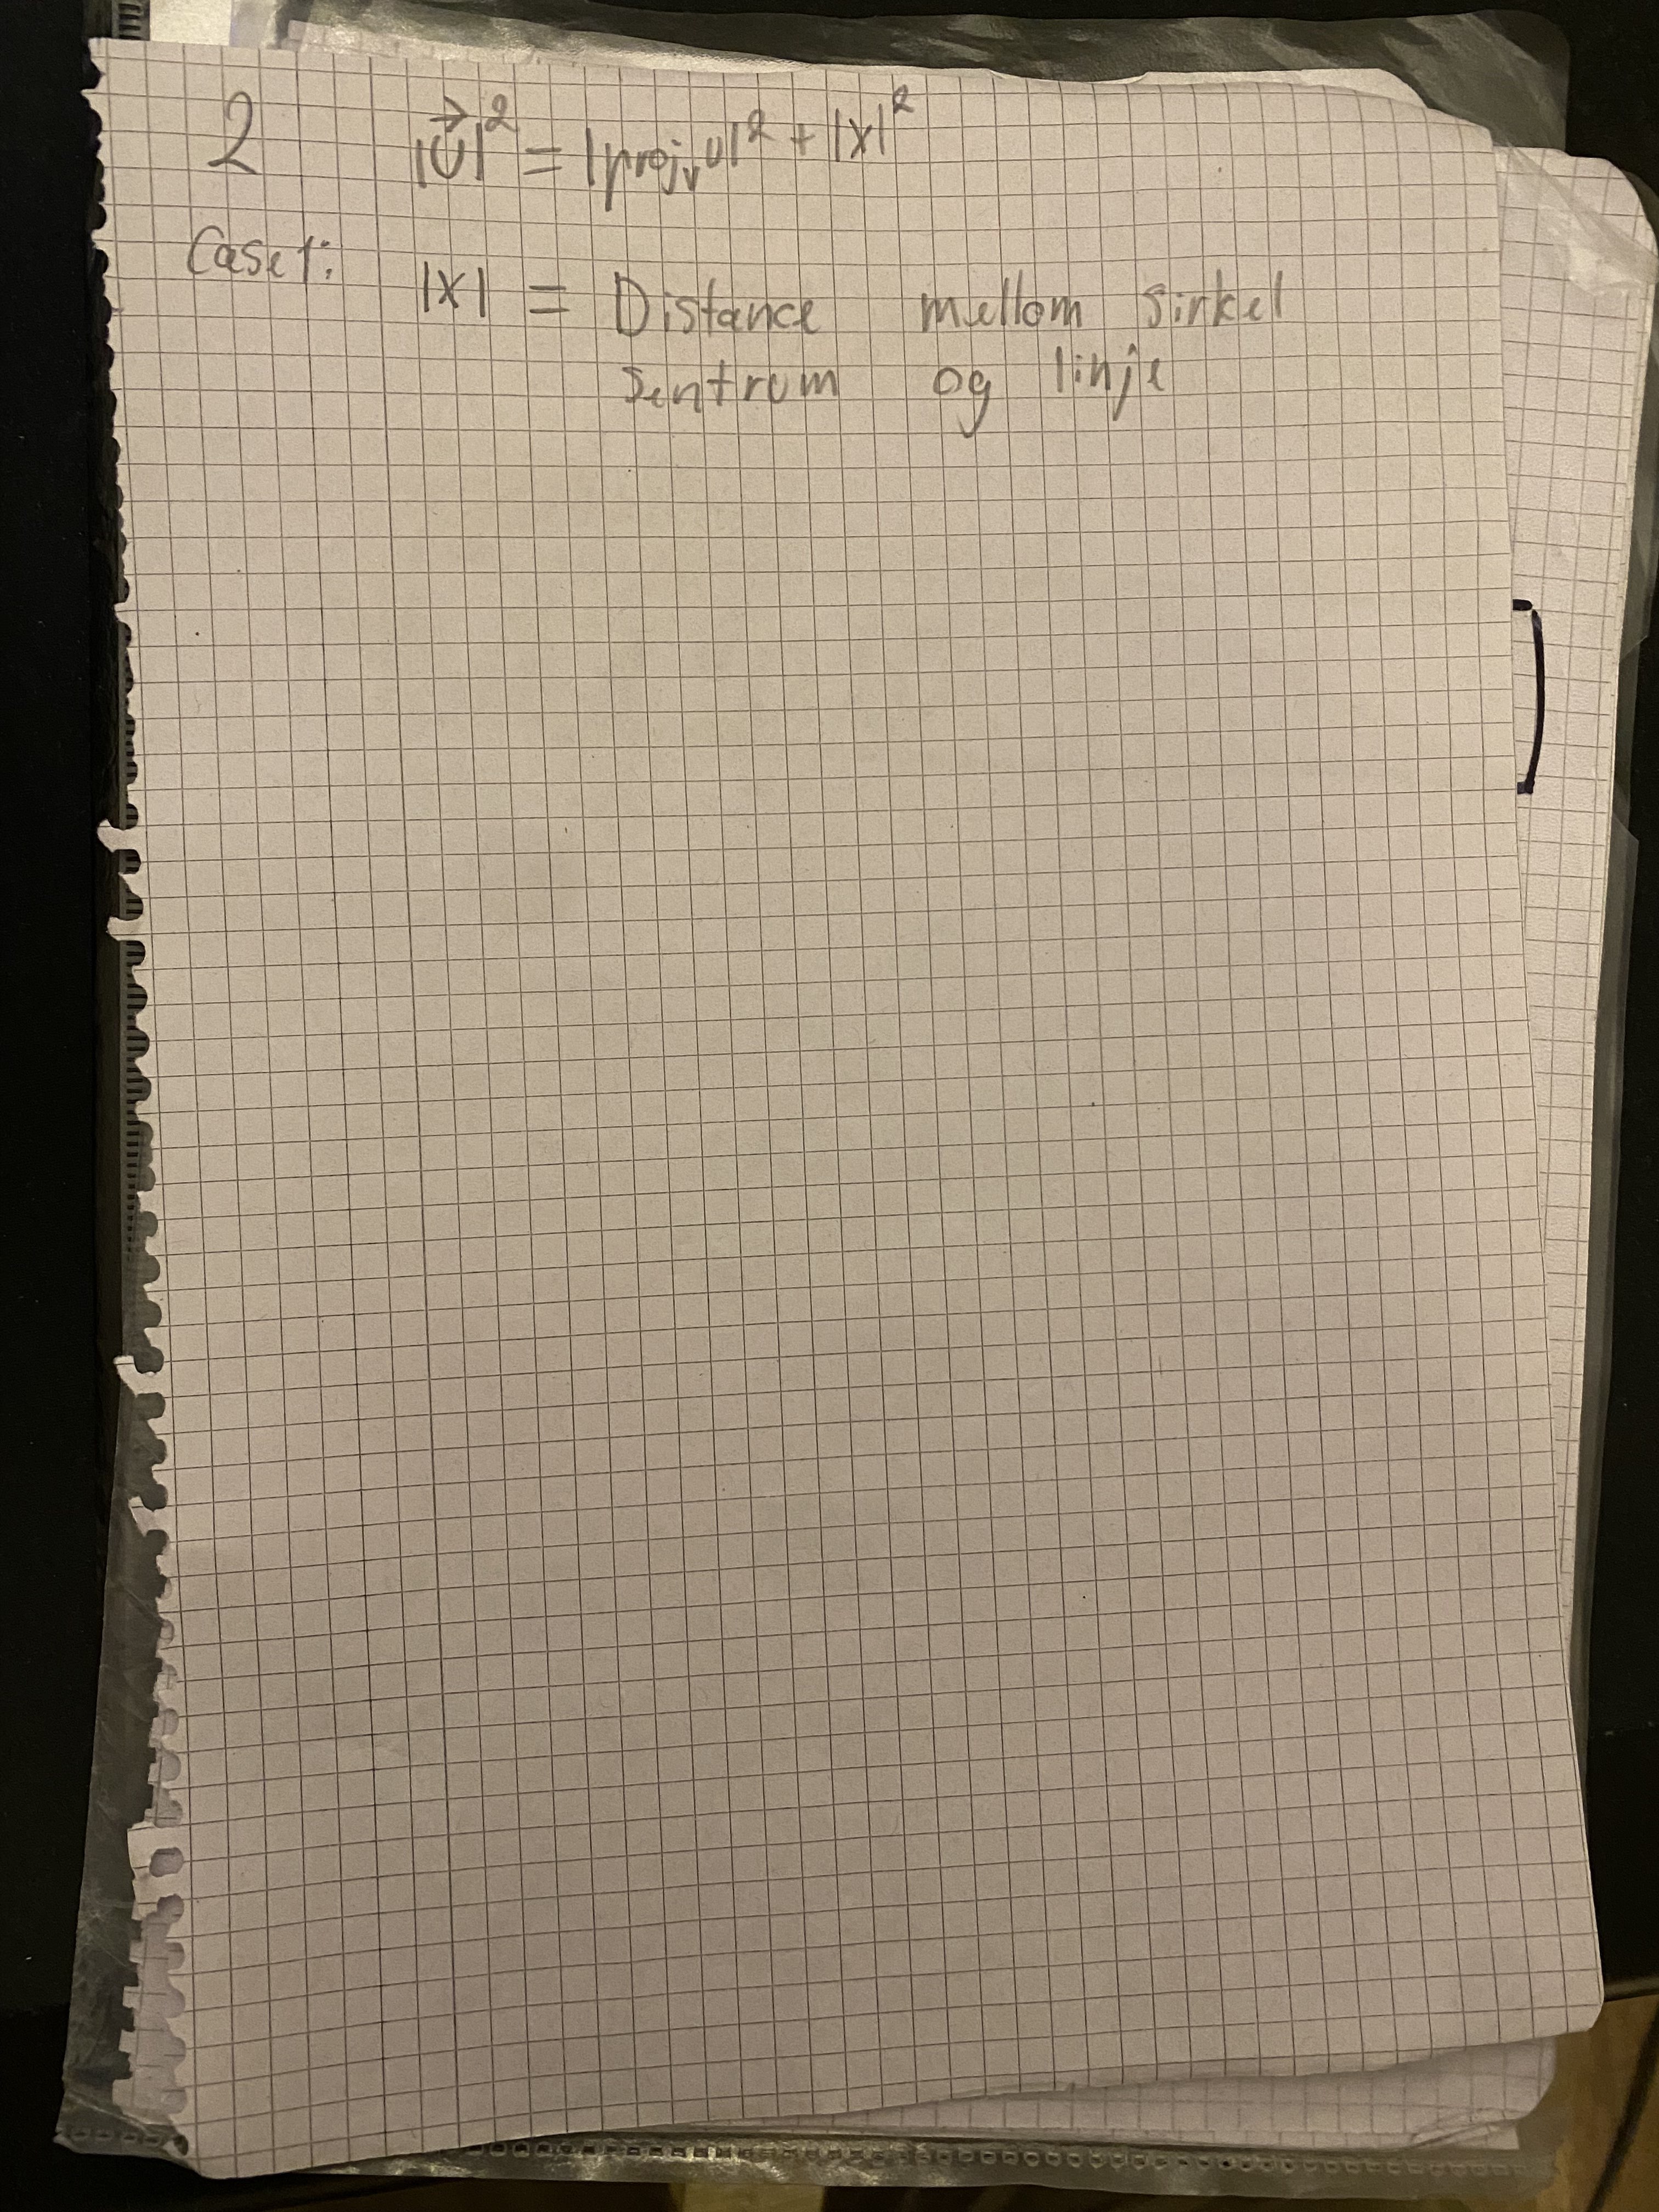 2 |U⃗|² = |projᵥu|² + |x|²
Case 1: |x| = Distance mellom sirkel
sentrum og linje